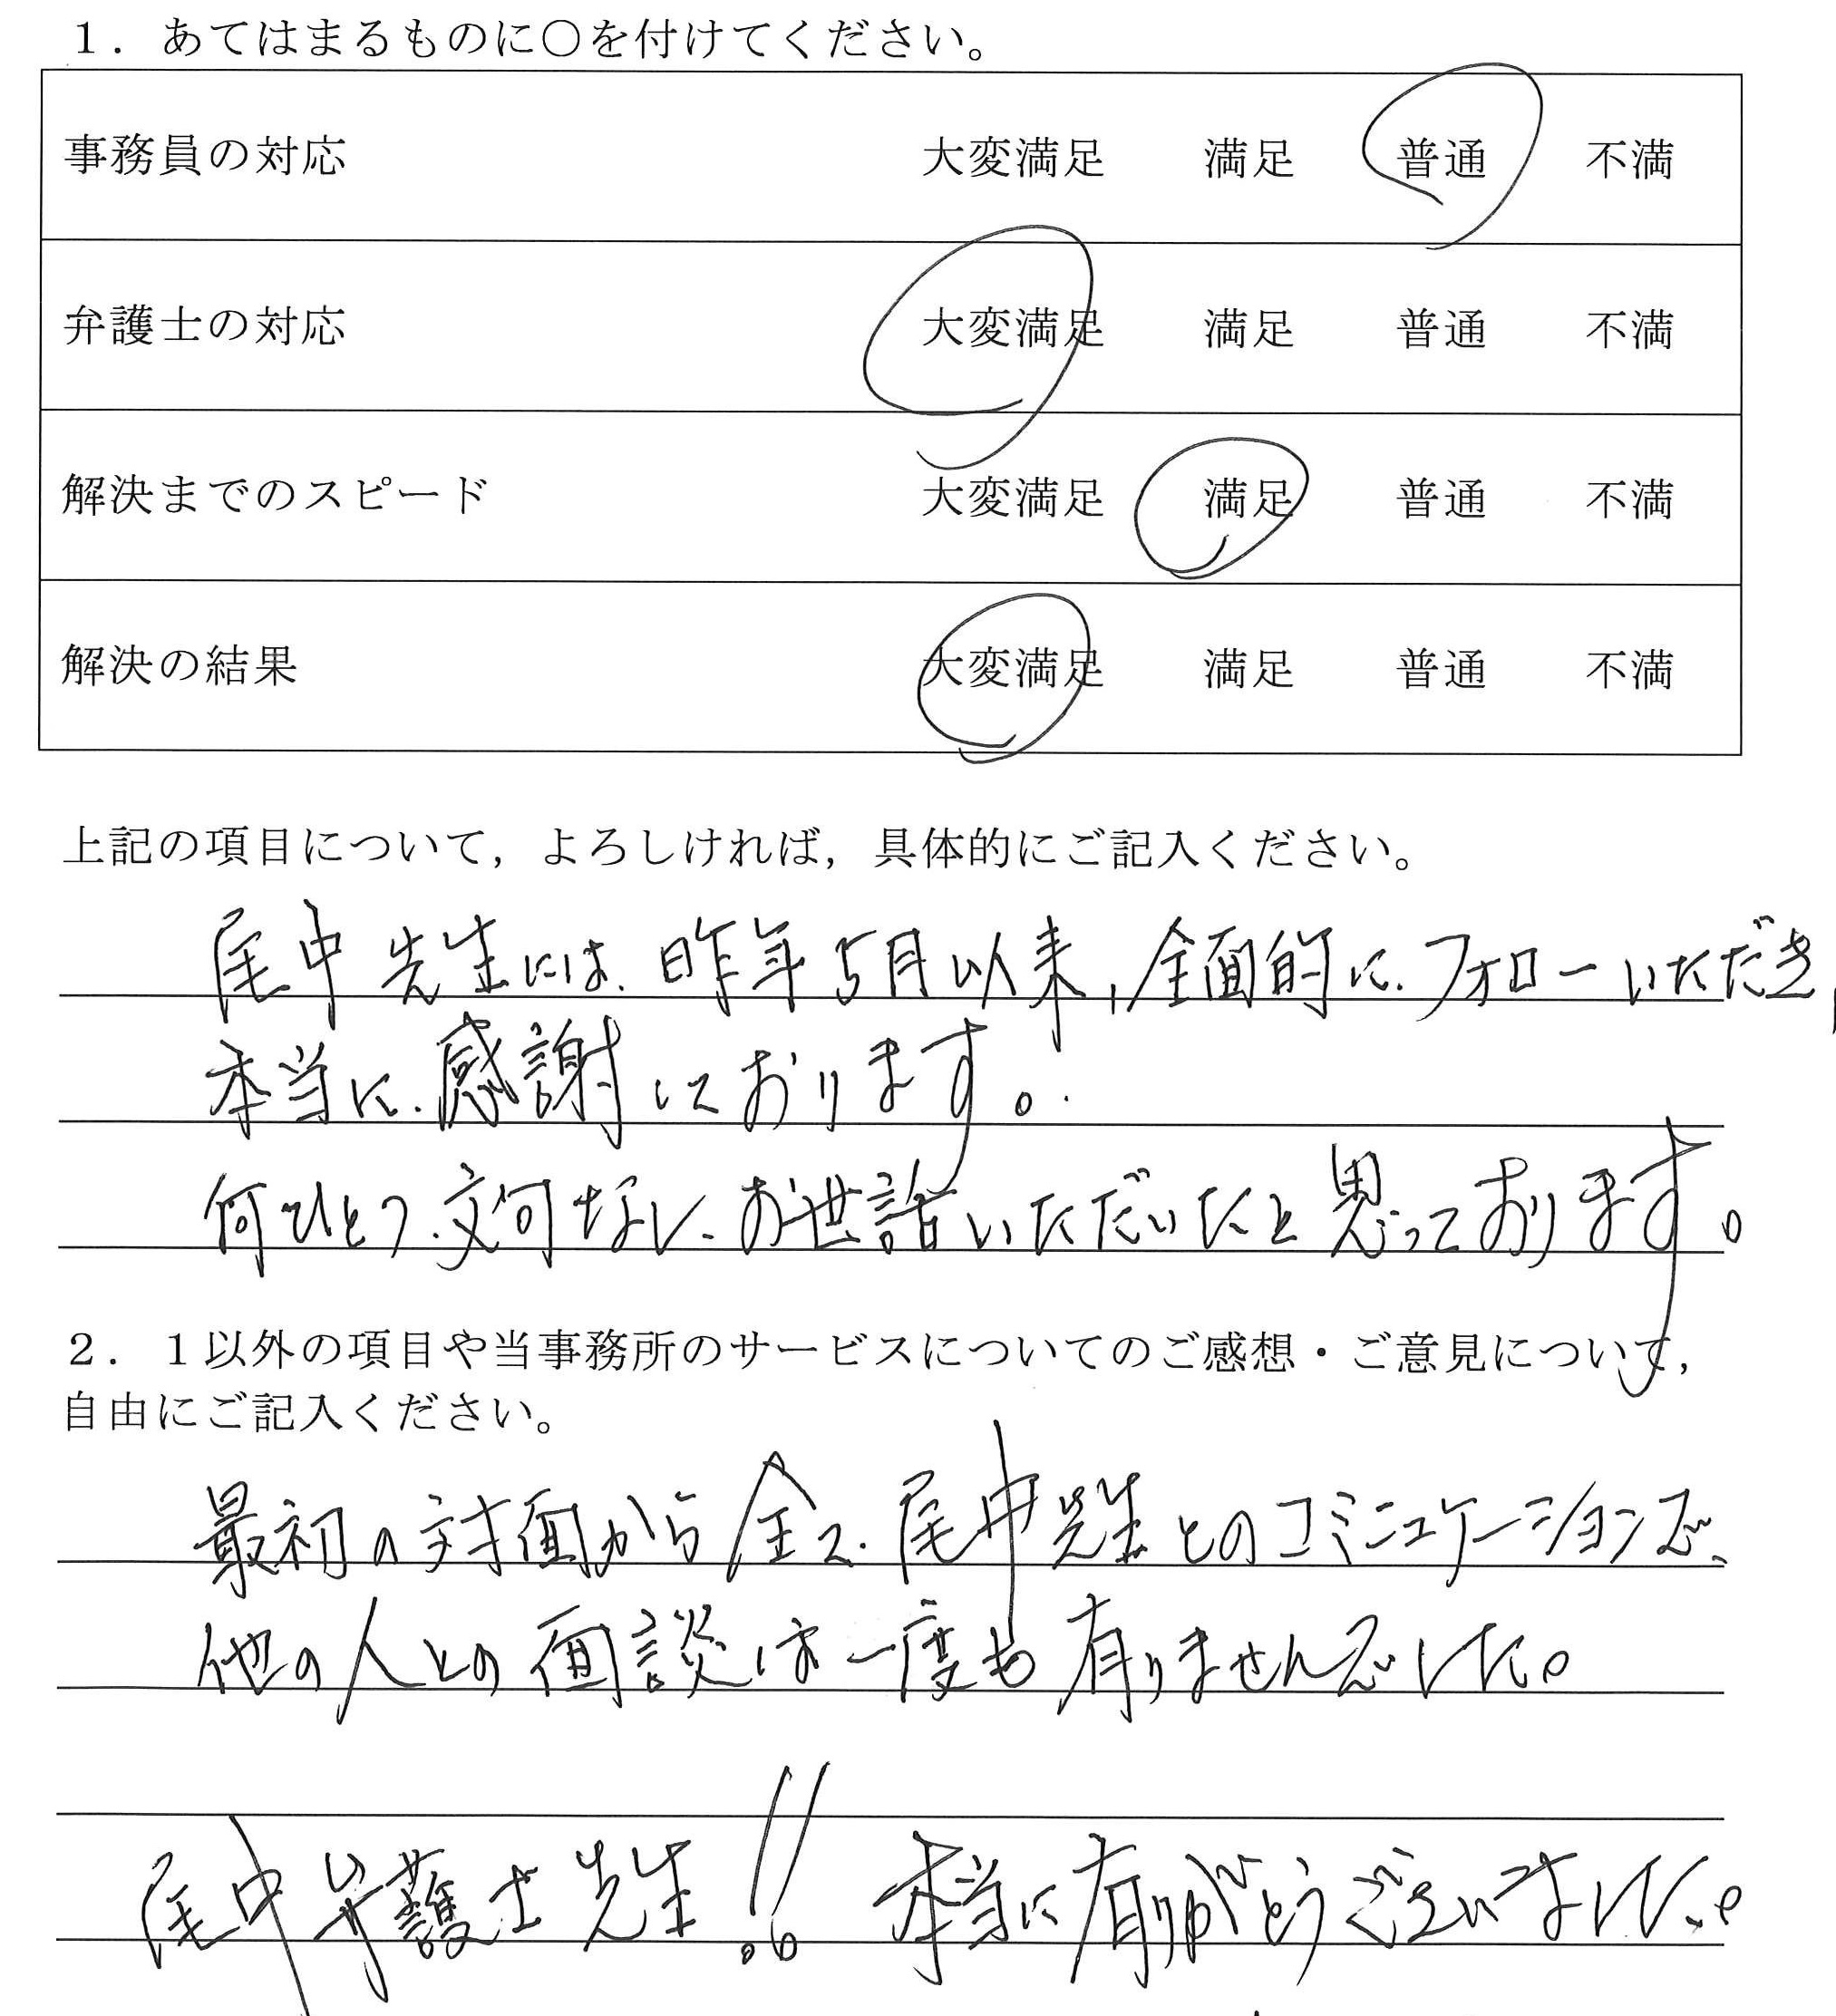 １．あてはまるものに○を付けてください。
事務員の対応 大変満足 満足 普通 不満
弁護士の対応 大変満足 満足 普通 不満
解決までのスピード 大変満足 満足 普通 不満
解決の結果 大変満足 満足 普通 不満
上記の項目について，よろしければ，具体的にご記入ください。
尾中先生には、昨年5月以来、全面的に、フォローいただき、
本当に、感謝しております。
何ひとつ、文句なし、お世話いただいたと思っております。
２．１以外の項目や当事務所のサービスについてのご感想・ご意見について，
自由にご記入ください。
最初の対面から全て、尾中先生とのコミニュケーションで、
他の人との面談は一度も有りませんでした。
尾中弁護士先生!! 本当に有りがとうございました。